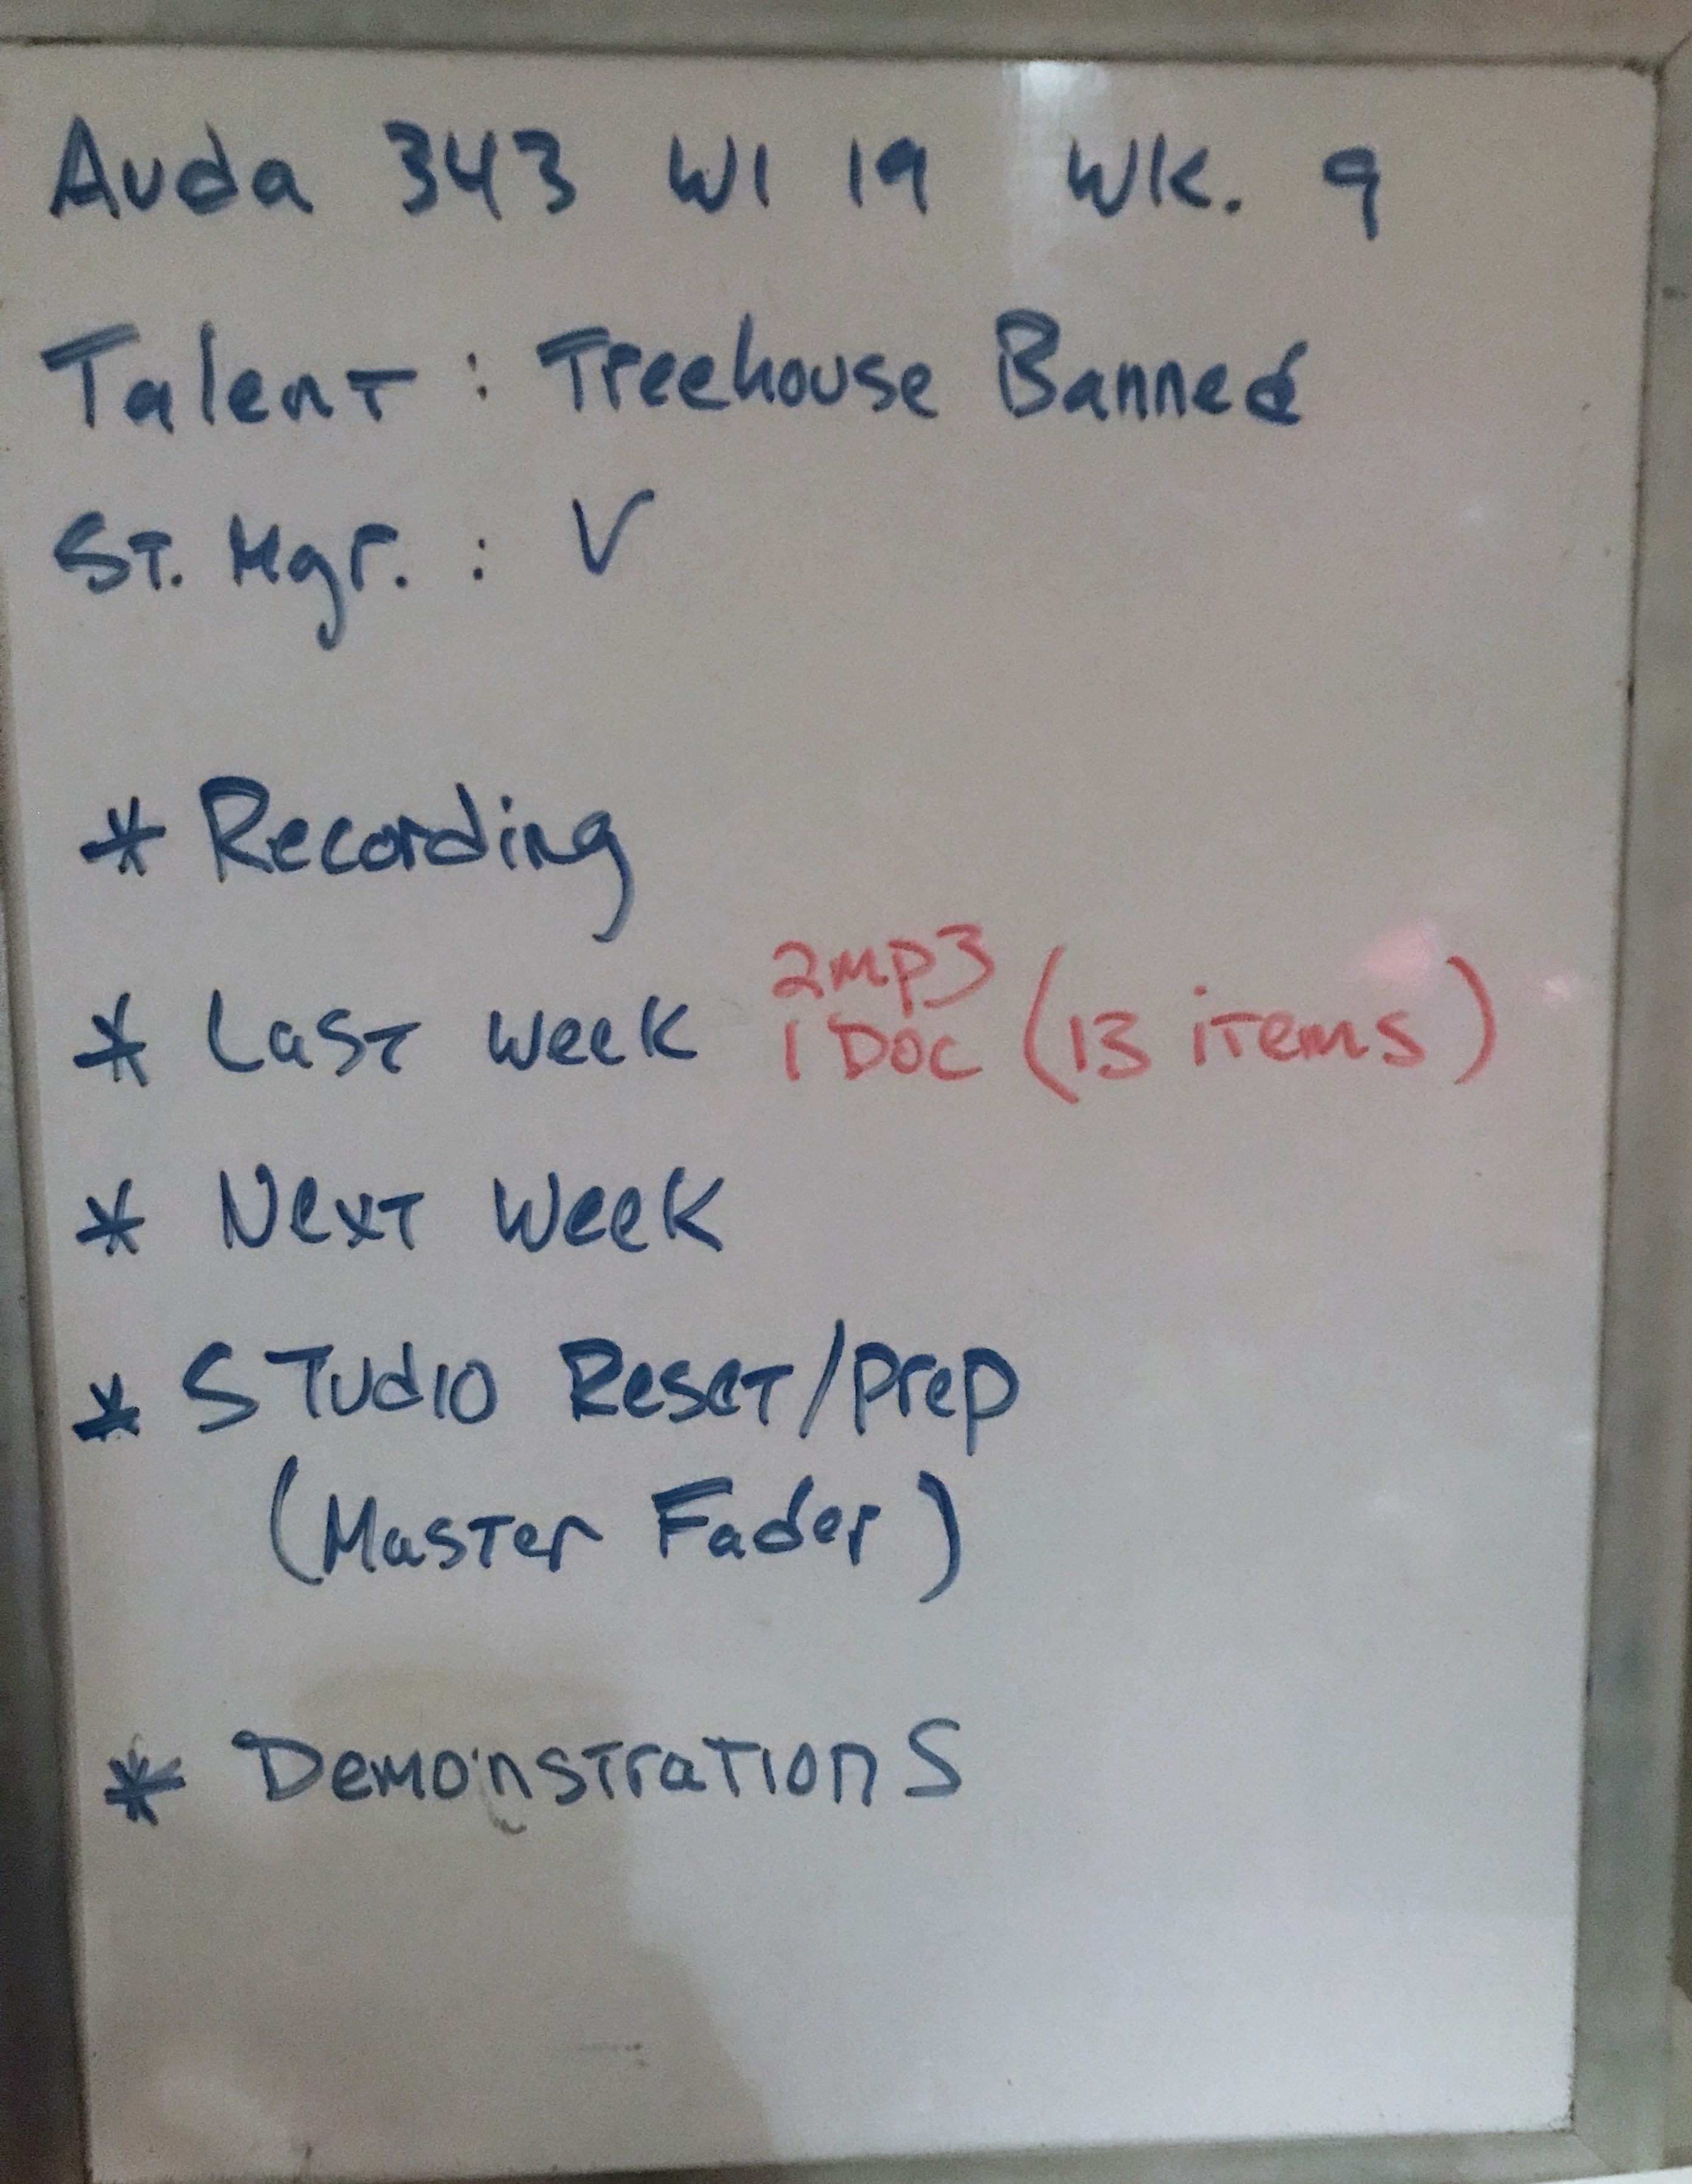 Auda 343 WI 19 Wk. 9
Talent : Treehouse Banned
ST. Mgr. : V
* Recording
* Last week 2mp3
1 Doc (13 items)
* Next Week
* Studio Reset/prep
(Master Fader)
* Demonstrations